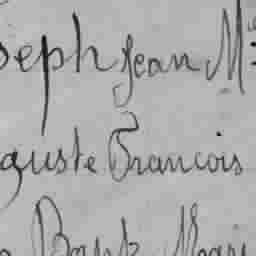 seph Jean M
guste Francois
Bapt Mari